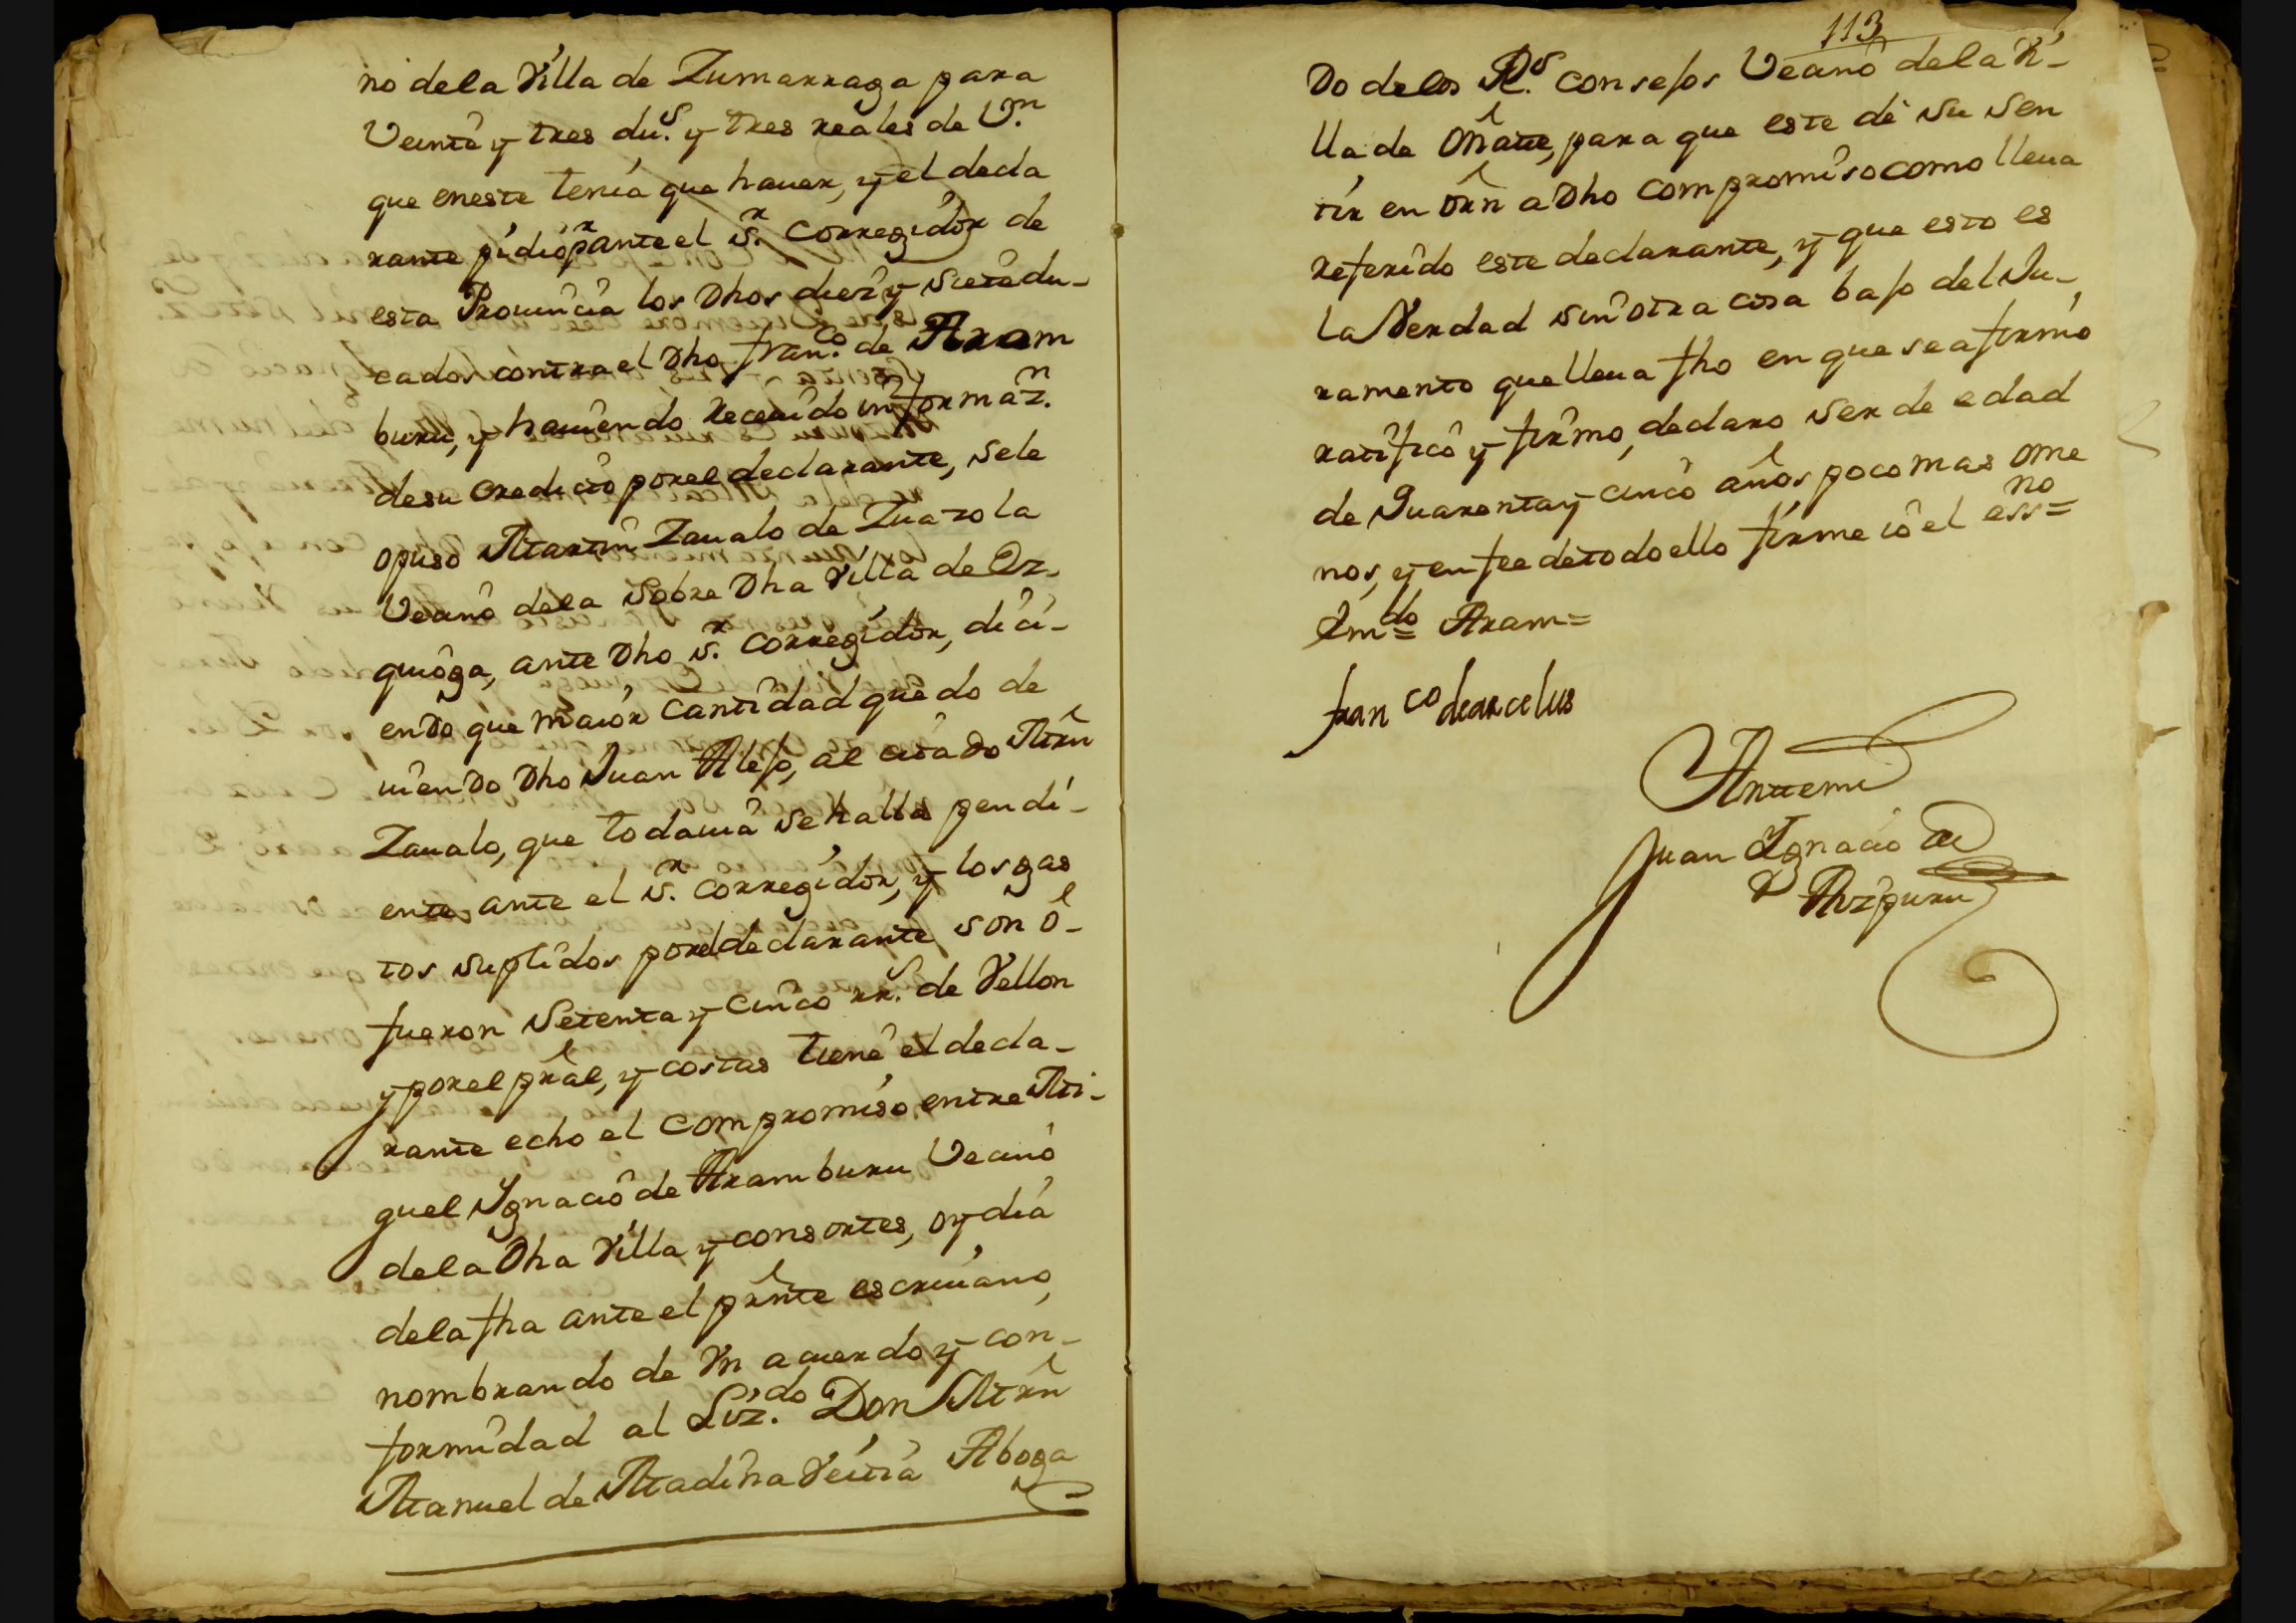 no dela Villa de Zumarraga para
Veinte y tres dus. y tres reales de Vn.
que eneste tenia que hauer, y el decla
rante pidio ante el Sr. Corregidor de
esta Prouincia los Dhos diez y sietedu-
cados contra el Dho franco. de Aram
buru, y hauiendo Receuido informazn.
desu credicto porel declarante, sele
opuso Martin Zaualo de Zuazola
Vecino dela Sobre Dha Villa de Oz-
quioga, ante Dho Sr. Corregidor, dici-
endo que maior cantidad quedo de
uiendo Dho Juan Alejo, al citado Mrn
Zaualo, que todauia se halla pendi-
ente ante el Sr. Corregidor, y los gas
tos suplidos poreldeclarante son o-
fueron Setenta y cinco rrs. de Vellon
y porel pral, y costas tiene el decla-
rante echo el compromiso entre Mi-
guel Ygnacio de Aramburu Vecino
dela Dha Villa y consortes, oy dia
dela fha ante el prnte escriuano,
nombrando de Vn acuerdo y con-
formidad al Lizdo. Don Mrn
Manuel de Madina Veitia Aboga
113
Do delos Rs. Consejos Vecino dela Vi-
lla de Oñate, para que este dè su sen
tir en orn a Dho compromiso como lleua
referido este declarante, y que esto es
la Verdad sin otra cosa bajo del Ju-
ramento que lleua fho en que se afirmó
ratificó y firmo, declaro ser de edad
de Quarenta y cinco años poco mas ome
nos, y en fee detodo ello firme io el essno=
Emdo= Aram=
Franco dearcelus
Antemi
Juan Ygnacio de
Azpuru